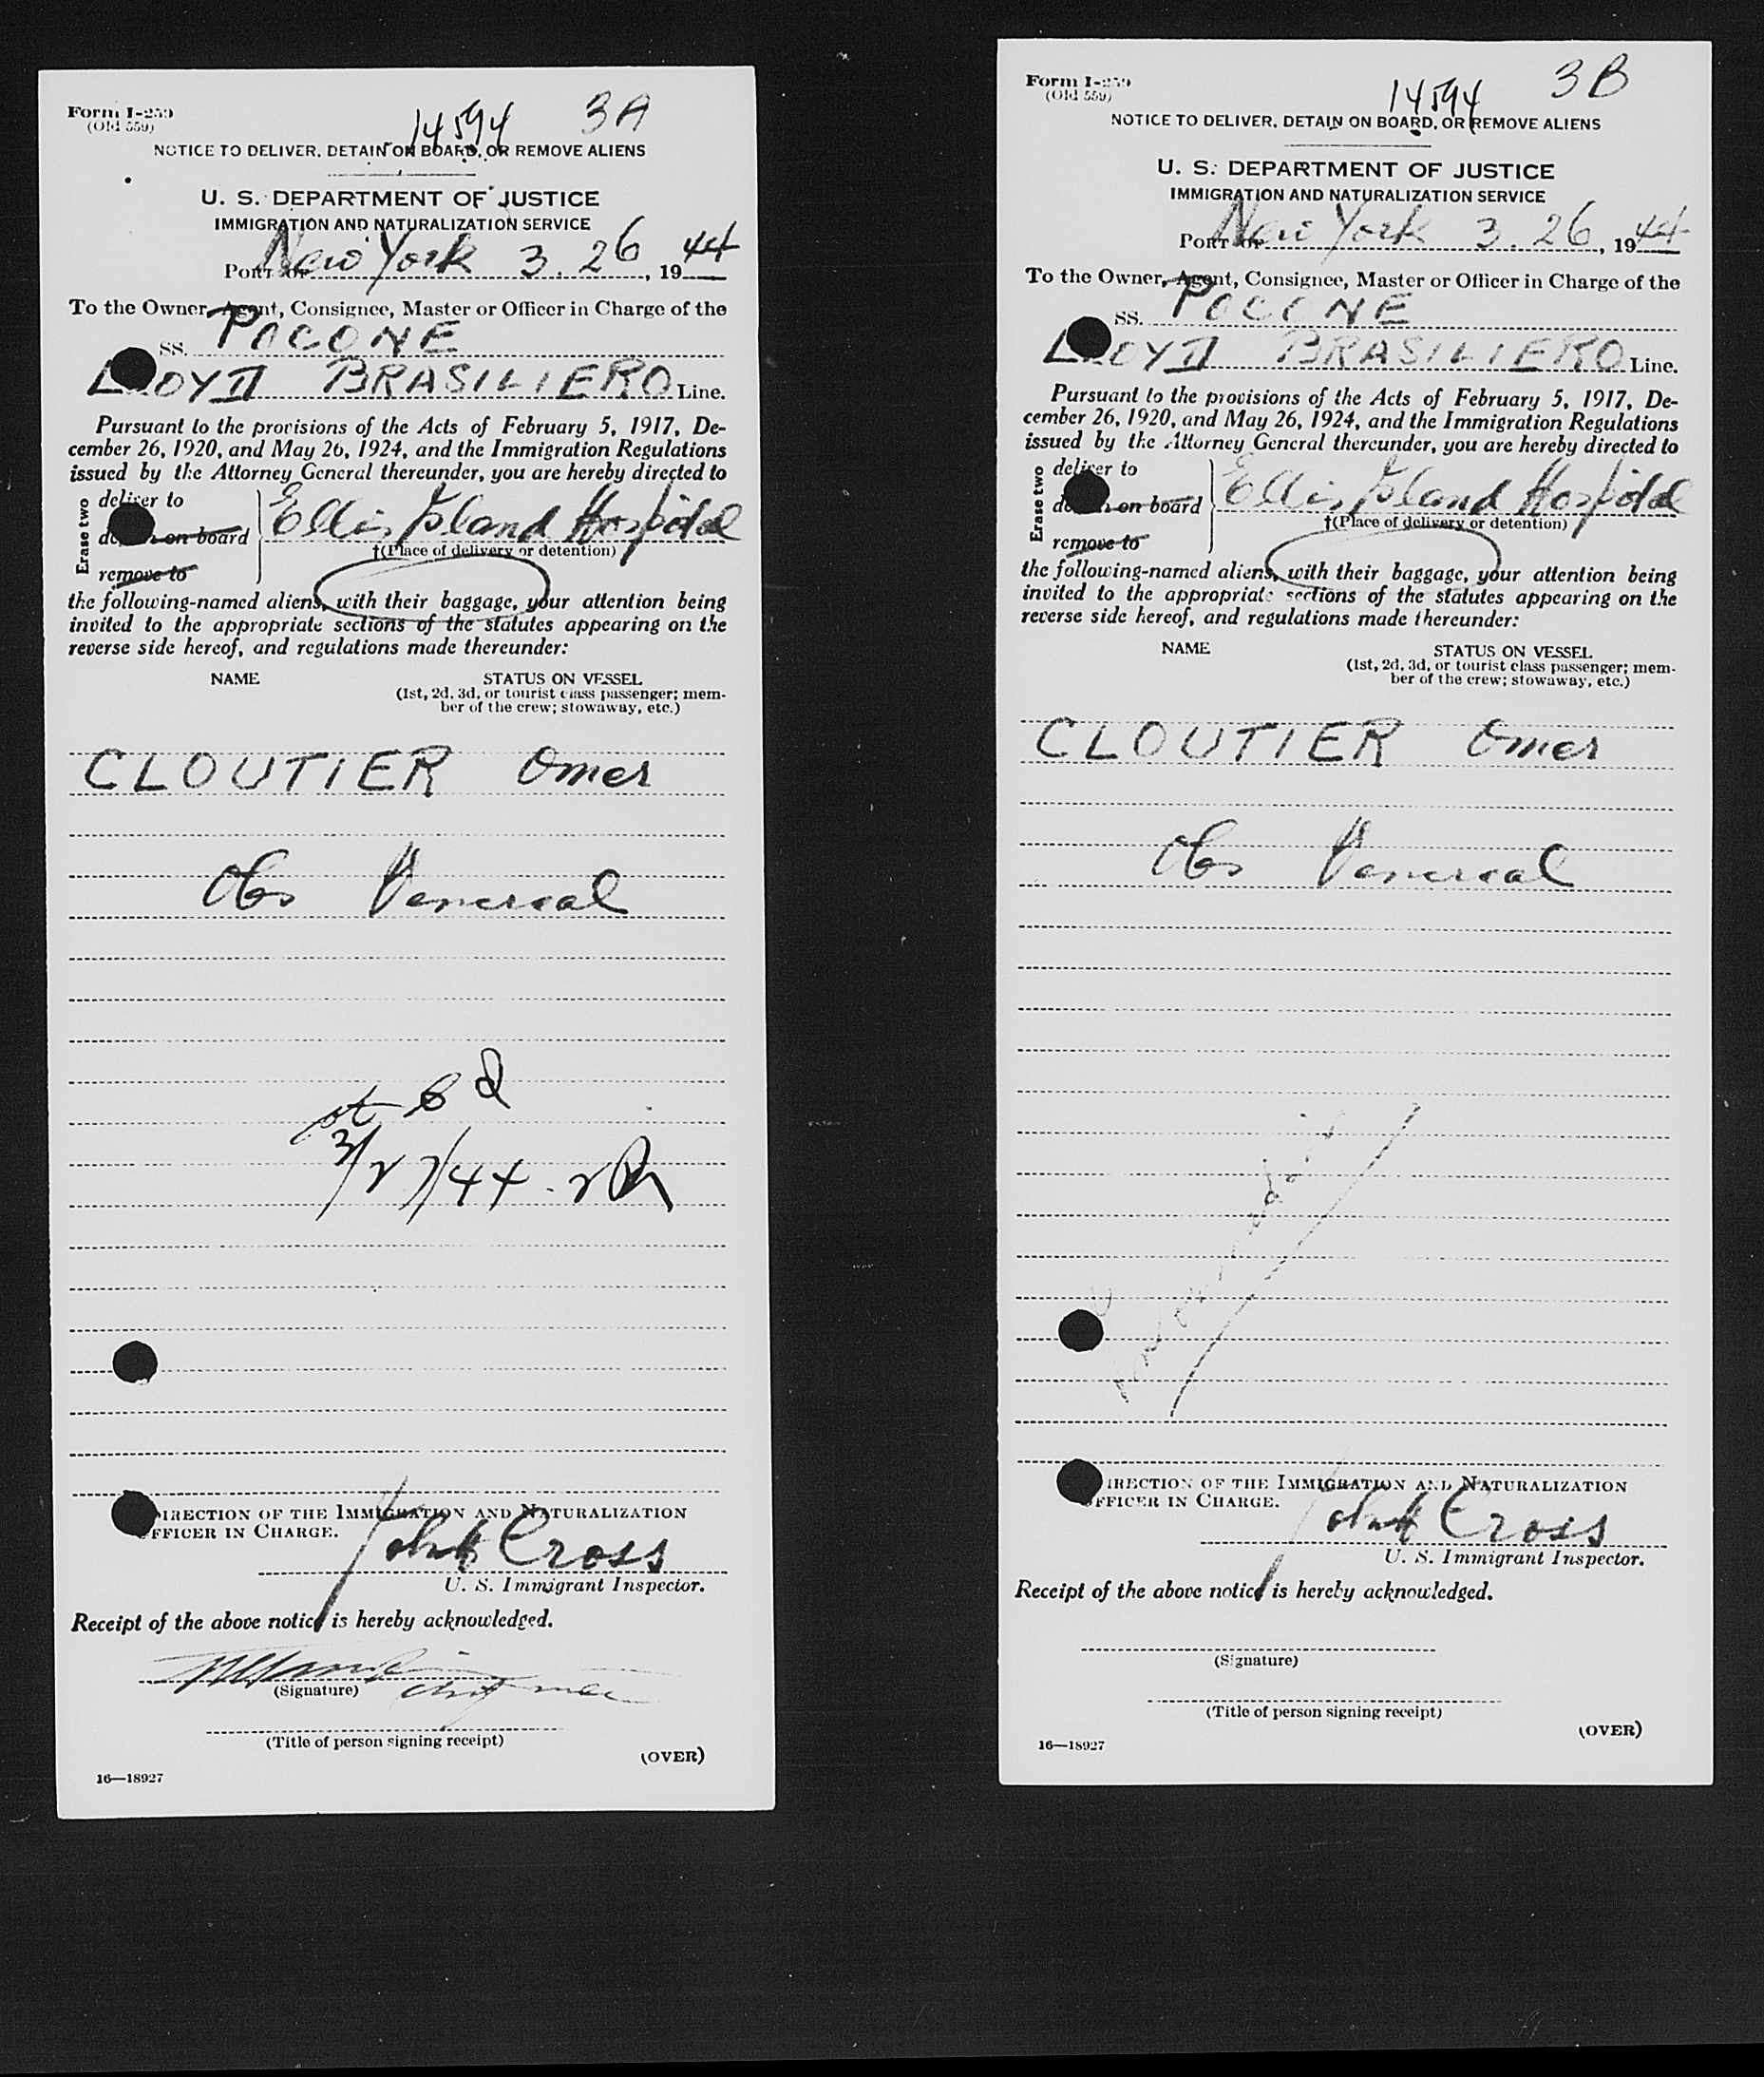 Form I-259
(Old 559)
14594 3A
NOTICE TO DELIVER, DETAIN ON BOARD, OR REMOVE ALIENS
U. S. DEPARTMENT OF JUSTICE
IMMIGRATION AND NATURALIZATION SERVICE
Port of New York 3. 26, 1944
To the Owner, Agent, Consignee, Master or Officer in Charge of the
SS. POCONE
LLOYD BRASILIERO Line.
Pursuant to the provisions of the Acts of February 5, 1917, De-
cember 26, 1920, and May 26, 1924, and the Immigration Regulations
issued by the Attorney General thereunder, you are hereby directed to
Erase two
deliver to
on board
remove to
Ellis Island Hospital
†(Place of delivery or detention)
the following-named aliens, with their baggage, your attention being
invited to the appropriate sections of the statutes appearing on the
reverse side hereof, and regulations made thereunder:
NAME STATUS ON VESSEL
(1st, 2d, 3d, or tourist class passenger; mem-
ber of the crew; stowaway, etc.)
CLOUTIER Omer
Obs Venereal
3/27/44
DIRECTION OF THE IMMIGRATION AND NATURALIZATION
OFFICER IN CHARGE.
John Cross
U. S. Immigrant Inspector.
Receipt of the above notice is hereby acknowledged.
(Signature)
(Title of person signing receipt)
(OVER)
16—18927
Form I-259
(Old 559)
14594 3B
NOTICE TO DELIVER, DETAIN ON BOARD, OR REMOVE ALIENS
U. S. DEPARTMENT OF JUSTICE
IMMIGRATION AND NATURALIZATION SERVICE
Port of New York 3. 26, 1944
To the Owner, Agent, Consignee, Master or Officer in Charge of the
SS. POCONE
LLOYD BRASILIERO Line.
Pursuant to the provisions of the Acts of February 5, 1917, De-
cember 26, 1920, and May 26, 1924, and the Immigration Regulations
issued by the Attorney General thereunder, you are hereby directed to
Erase two
deliver to
on board
remove to
Ellis Island Hospital
†(Place of delivery or detention)
the following-named aliens, with their baggage, your attention being
invited to the appropriate sections of the statutes appearing on the
reverse side hereof, and regulations made thereunder:
NAME STATUS ON VESSEL
(1st, 2d, 3d, or tourist class passenger; mem-
ber of the crew; stowaway, etc.)
CLOUTIER Omer
Obs Venereal
DIRECTION OF THE IMMIGRATION AND NATURALIZATION
OFFICER IN CHARGE.
John Cross
U. S. Immigrant Inspector.
Receipt of the above notice is hereby acknowledged.
(Signature)
(Title of person signing receipt)
(OVER)
16—18927